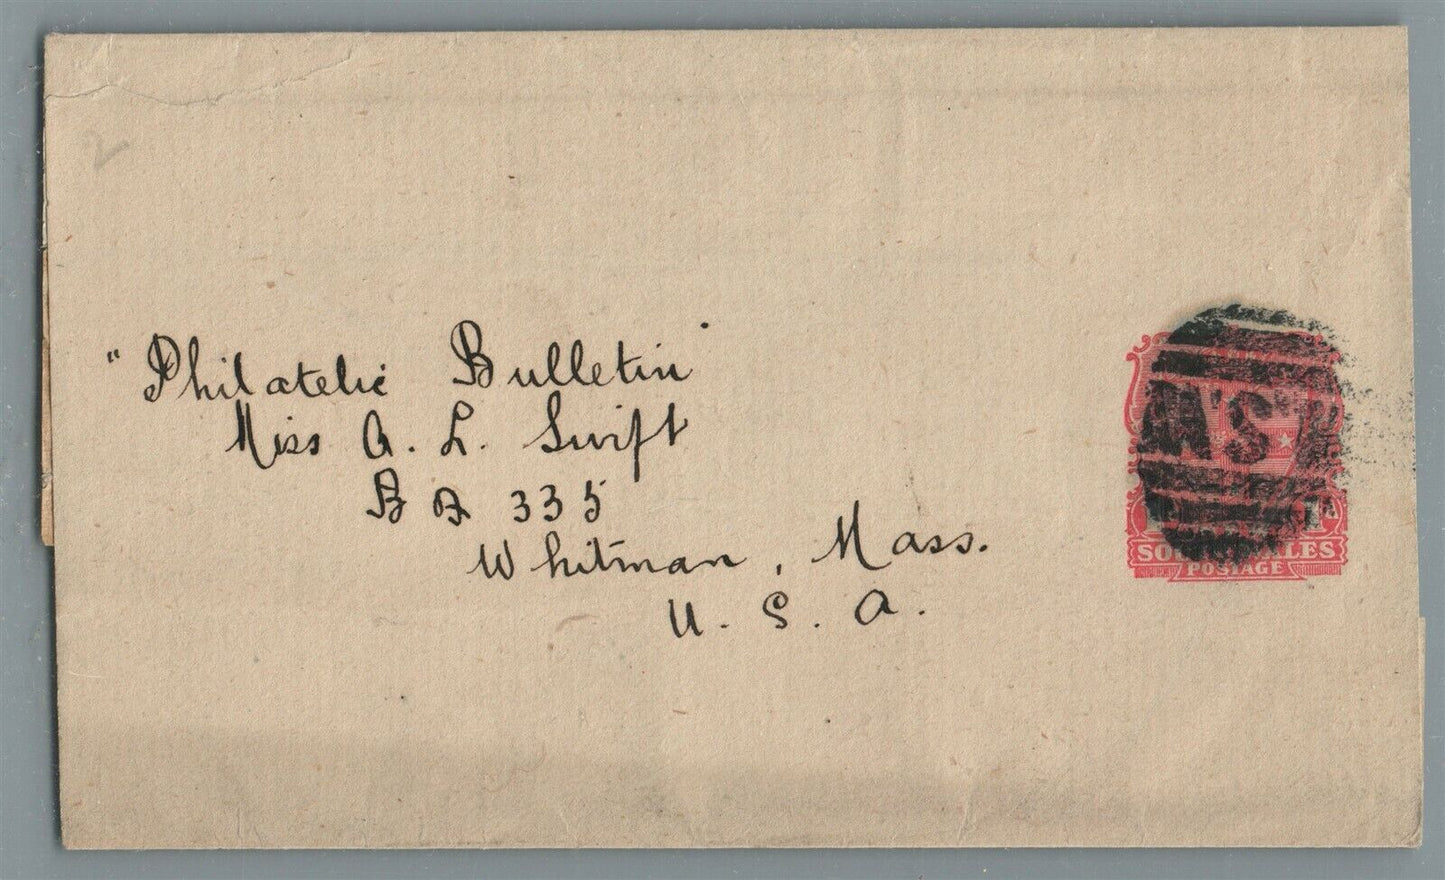 2
"Philatelic Bulletin"
Miss A. L. Swift
Box 335
Whitman, Mass.
U. S. A.
N.S.W
SO ALES
POSTAGE